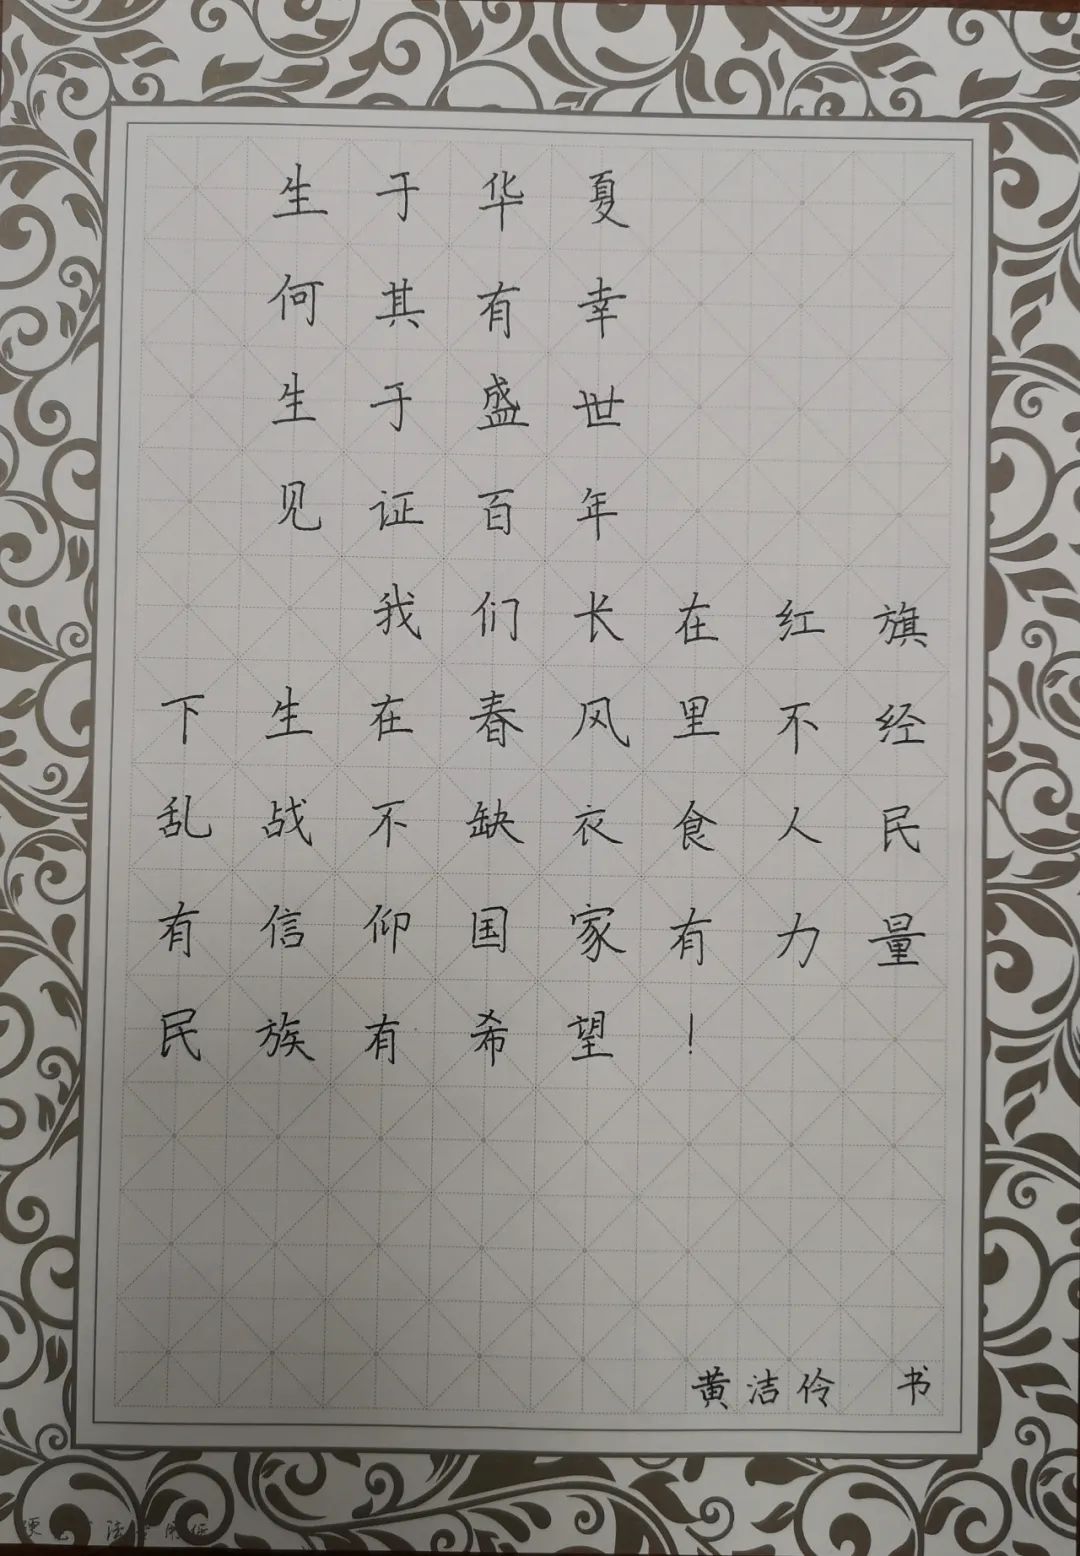 生于华夏
何其有幸
生于盛世
见证百年
我们长在红旗
下生在春风里不经
乱战不缺衣食人民
有信仰国家有力量
民族有希望！
黄洁伶 书